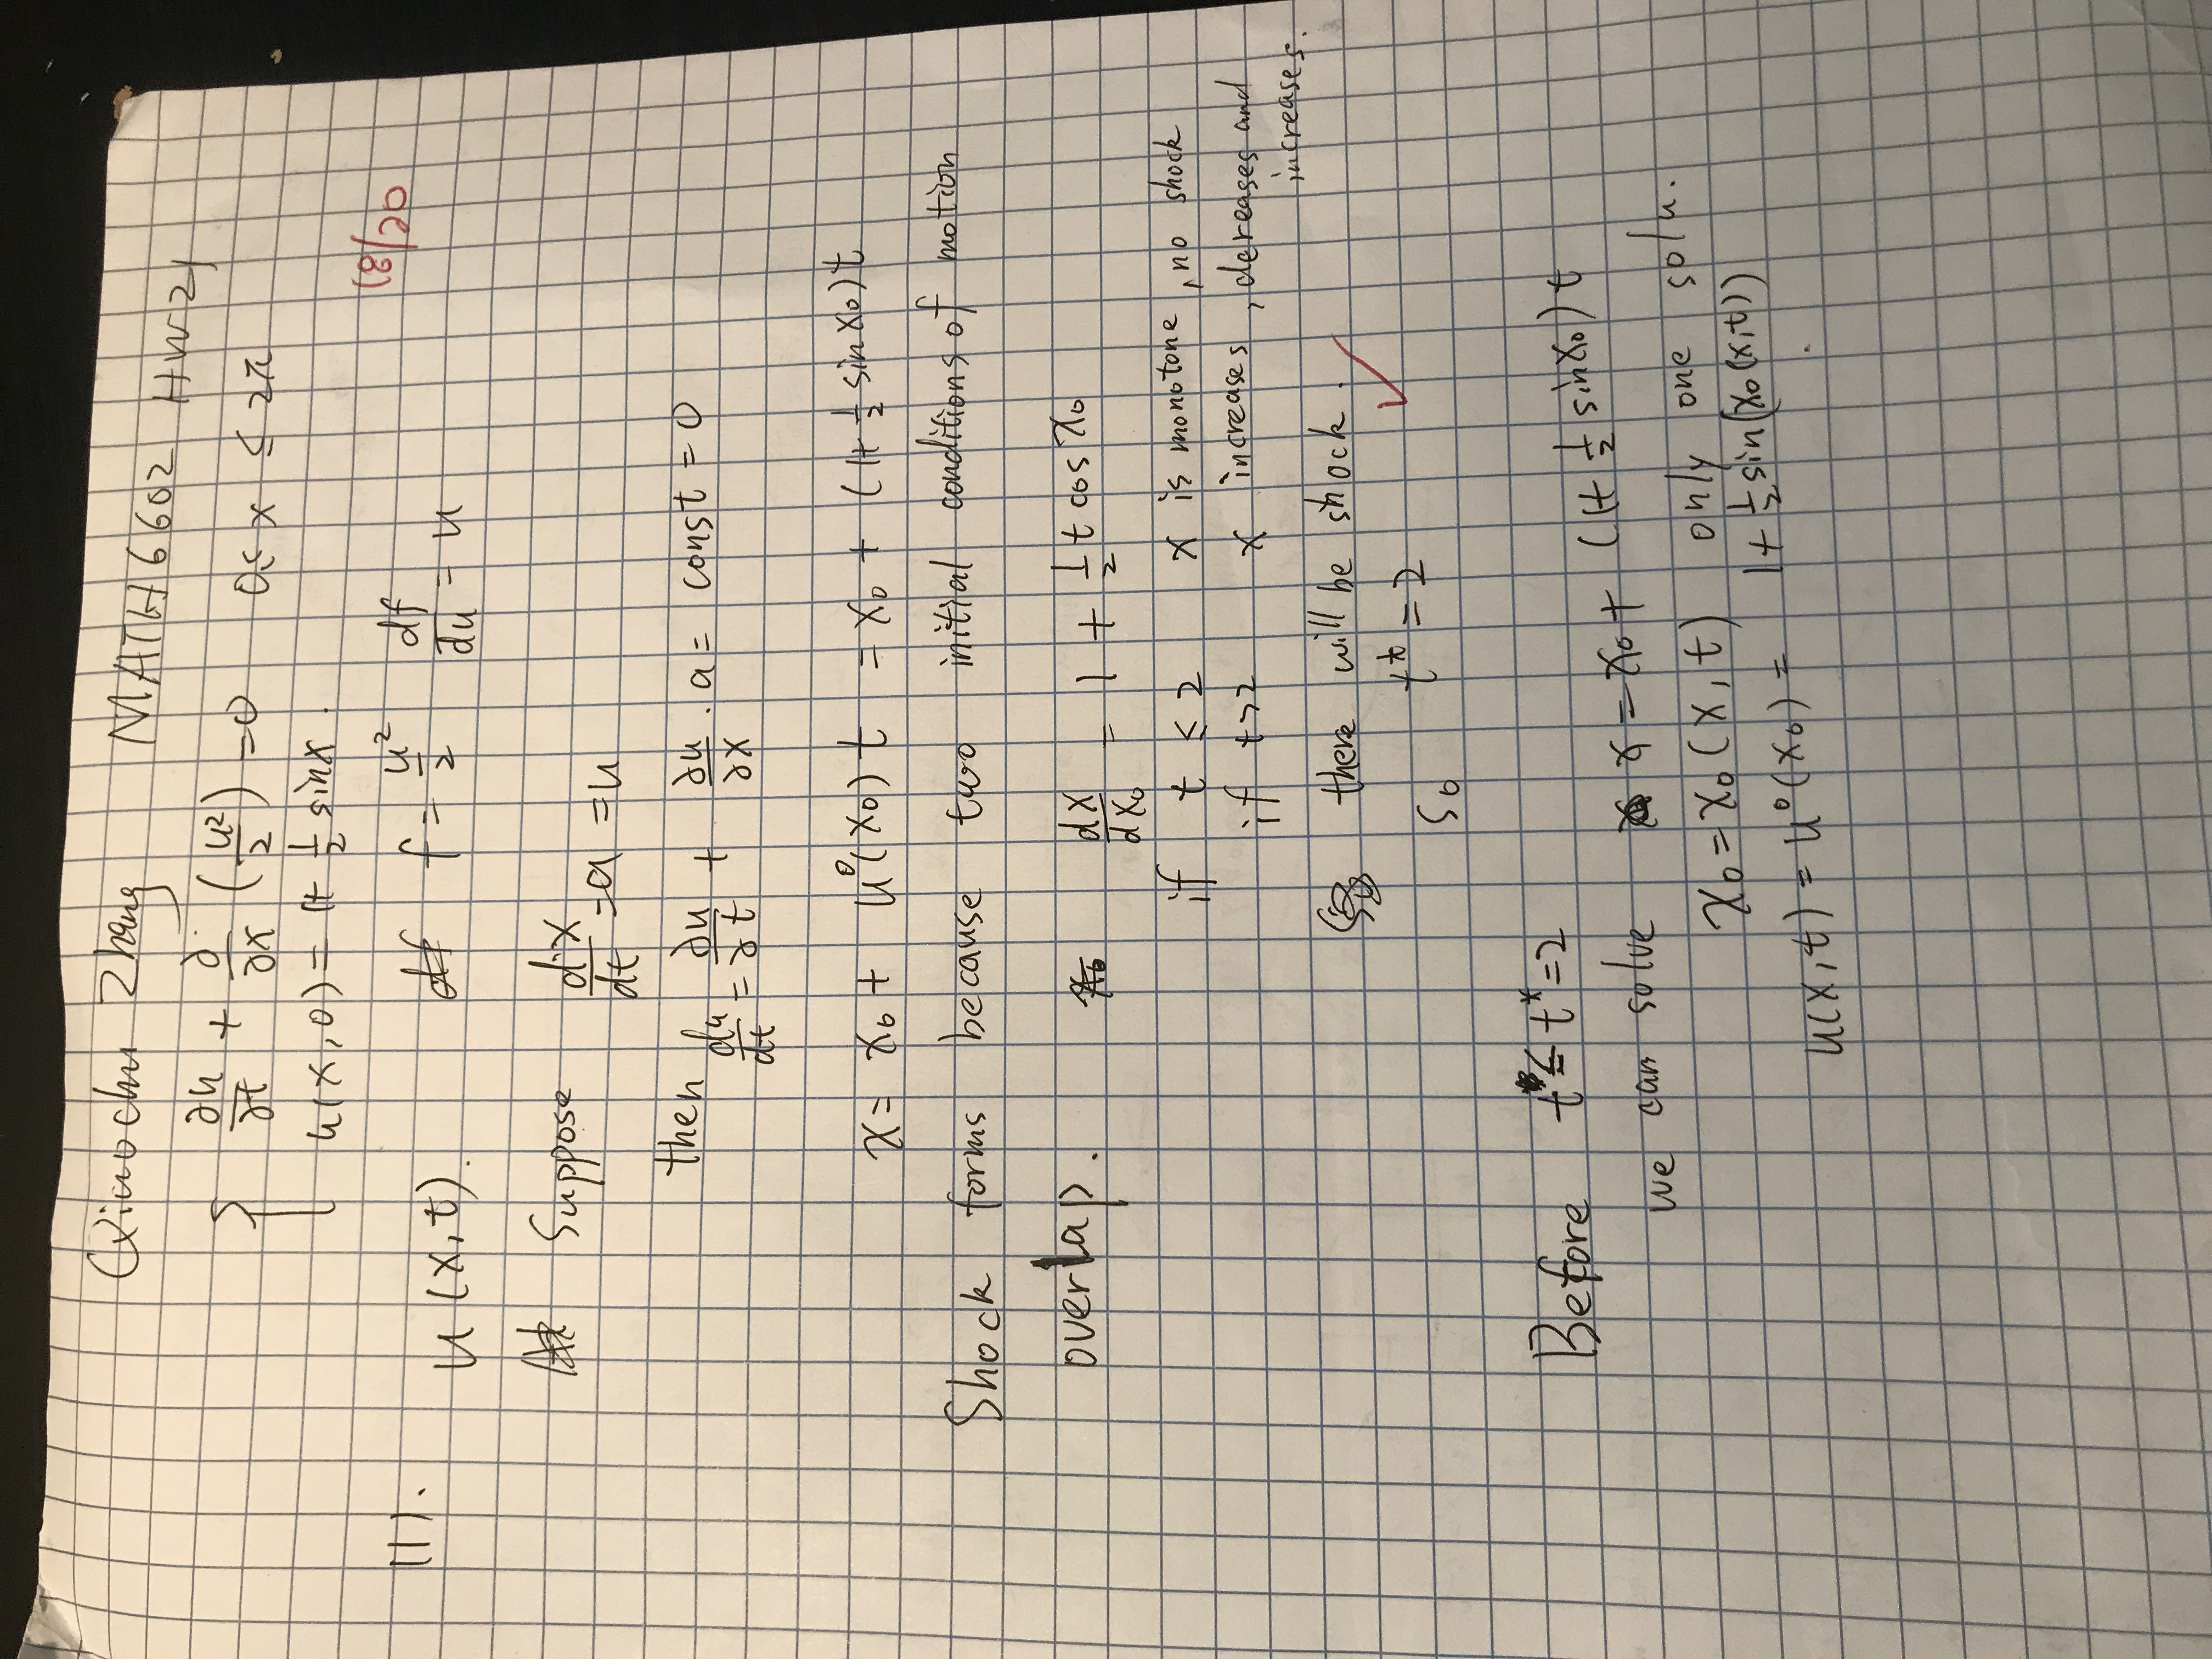 Qiuochu Zhang MATH 6602 HW21
∂u/∂t + ∂/∂x (u²/2) = 0 0 ≤ x ≤ 2π
u(x,0) = 1+ 1/2 sinx.
18/20
(1).
u(x,t). df f = u²/2 df/du = u
At Suppose dx/dt = a = u
then du/dt = ∂u/∂t + ∂u/∂x · a = const = 0
x = x₀ + u⁰(x₀)t = x₀ + (1+ 1/2 sin x₀)t
Shock forms because two initial conditions of motion
overlap. x₀ dx/dx₀ = 1 + 1/2 t cos x₀
if t ≤ 2 x is monotone, no shock
if t>2 x increases, dereases and
increases.
there will be shock.
So t* = 2
Before t ≤ t* = 2
we can solve x = x₀ + (1+ 1/2 sinx₀)t
x₀ = x₀(x,t) only one solu.
u(x,t) = u⁰(x₀) = 1 + 1/2 sin(x₀(x,t))